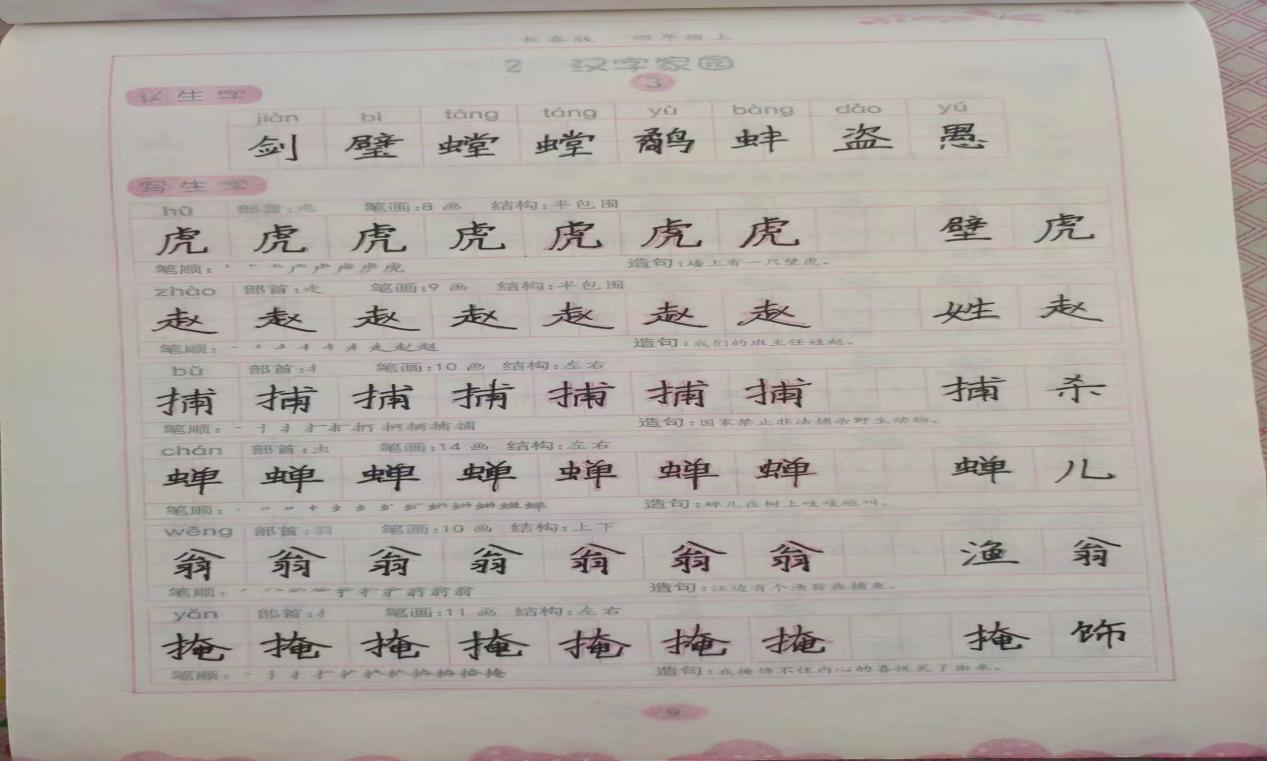 长春版 四年级上
2 汉字家园
3
认生字
jiàn bì táng táng yù bàng dào yú
剑 璧 螳 螳 鹬 蚌 盗 愚
写生字
hǔ 部首:虍 笔画:8 画 结构:半包围
虎 虎 虎 虎 虎 虎 虎 壁 虎
笔顺: 造句:墙上有一只壁虎。
zhào 部首:走 笔画:9 画 结构:半包围
赵 赵 赵 赵 赵 赵 赵 姓 赵
笔顺: 造句:我们的班主任姓赵。
bǔ 部首:扌 笔画:10 画 结构:左右
捕 捕 捕 捕 捕 捕 捕 捕 杀
笔顺: 造句:国家禁止非法捕杀野生动物。
chán 部首:虫 笔画:14 画 结构:左右
蝉 蝉 蝉 蝉 蝉 蝉 蝉 蝉 儿
笔顺: 造句:蝉儿在树上吱吱地叫。
wēng 部首:羽 笔画:10 画 结构:上下
翁 翁 翁 翁 翁 翁 翁 渔 翁
笔顺: 造句:江边有个渔翁在捕鱼。
yǎn 部首:扌 笔画:11 画 结构:左右
掩 掩 掩 掩 掩 掩 掩 掩 饰
笔顺: 造句:我掩饰不住内心的喜悦笑了出来。
9